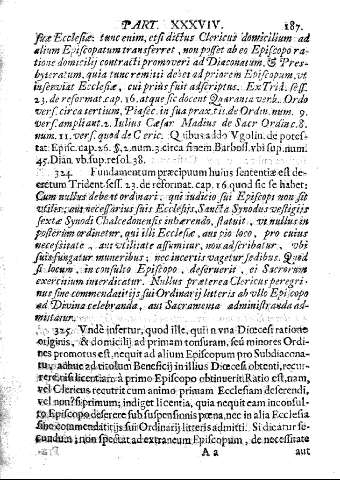 PART. XXXVIV. 187.
suæ Ecclesiæ: tunc enim, etsi dictus Clericus domicilium ad
alium Episcopatum transferret, non posset ab eo Episcopo ra-
tione domicilij contracti promoveri ad Diaconatum, & Pres-
byteratum, quia tunc remitti debet ad priorem Episcopum, ut
inserviat Ecclesiæ, cui priùs fuit adscriptus. Ex Trid. sess.
23. de reformat. cap. 16. atque sic docent Quaranta verb. Ordo
vers. circa tertium, Piasec. in sua praxi tit. de Ordin. num. 9.
vers. ampliant. 2. Iulius Cæsar Madius de Sacr Ordin c. 8.
num. 11. vers. quod de Cleric. Quibus addo Vgolin. de potes-
tat. Episc. cap. 26. §. 2. num. 3. circa finem. Barboss. vbi sup. num.
45. Dian. vb. sup. resol. 38.
324. Fundamentum præcipuum huius sententiæ est de-
cretum Trident. sess. 23. de reformat. cap. 16. quod sic se habet:
Cum nullus debeat ordinari, qui iudicio sui Episcopi non sit
vtilis; aut necessarius suis Ecclesijs, Sancta Synodus vestigijs
sexta Synodi Chalcedonensis inhærendo, statuit, vt nullus in
posterum ordinetur, qui illi Ecclesiæ, aut pio loco, pro cuius
necessitate, aut vtilitate assumitur, non adscribatur, vbi
suis fungatur muneribus; nec incertis vagetur sedibus. Quod
si locum, inconsulto Episcopo, deseruerit, ei Sacrorum
exercitium interdicatur. Nullus præterea Clericus peregri-
nus sine commendatitijs sui Ordinarij litteris ab vllo Episcopo
ad Divina celebranda, aut Sacramenta administranda ad-
mittatur.
325. Vndè infertur, quod ille, qui in vna Diœcesi ratione
originis, & domicilij ad primam tonsuram, seù minores Ordi-
nes promotus est, nequit ad alium Episcopum pro Subdiacona-
tu, adhuc ad titulum Beneficij in illius Diœcesi obtenti, recur-
rere, nisi licentiam à primo Episcopo obtinuerit. Ratio est, nam,
vel Clericus recurrit cum animo primam Ecclesiam deserendi,
vel non? si primum; indiget licentia, quia nequit eam inconsul-
to Episcopo deserere sub suspensionis pœna, nec in alia Ecclesia
sine commendatitijs sui Ordinarij litteris admitti. Si dicatur se-
cundum; non spectat ad extraneum Episcopum, de necessitate
A a aut